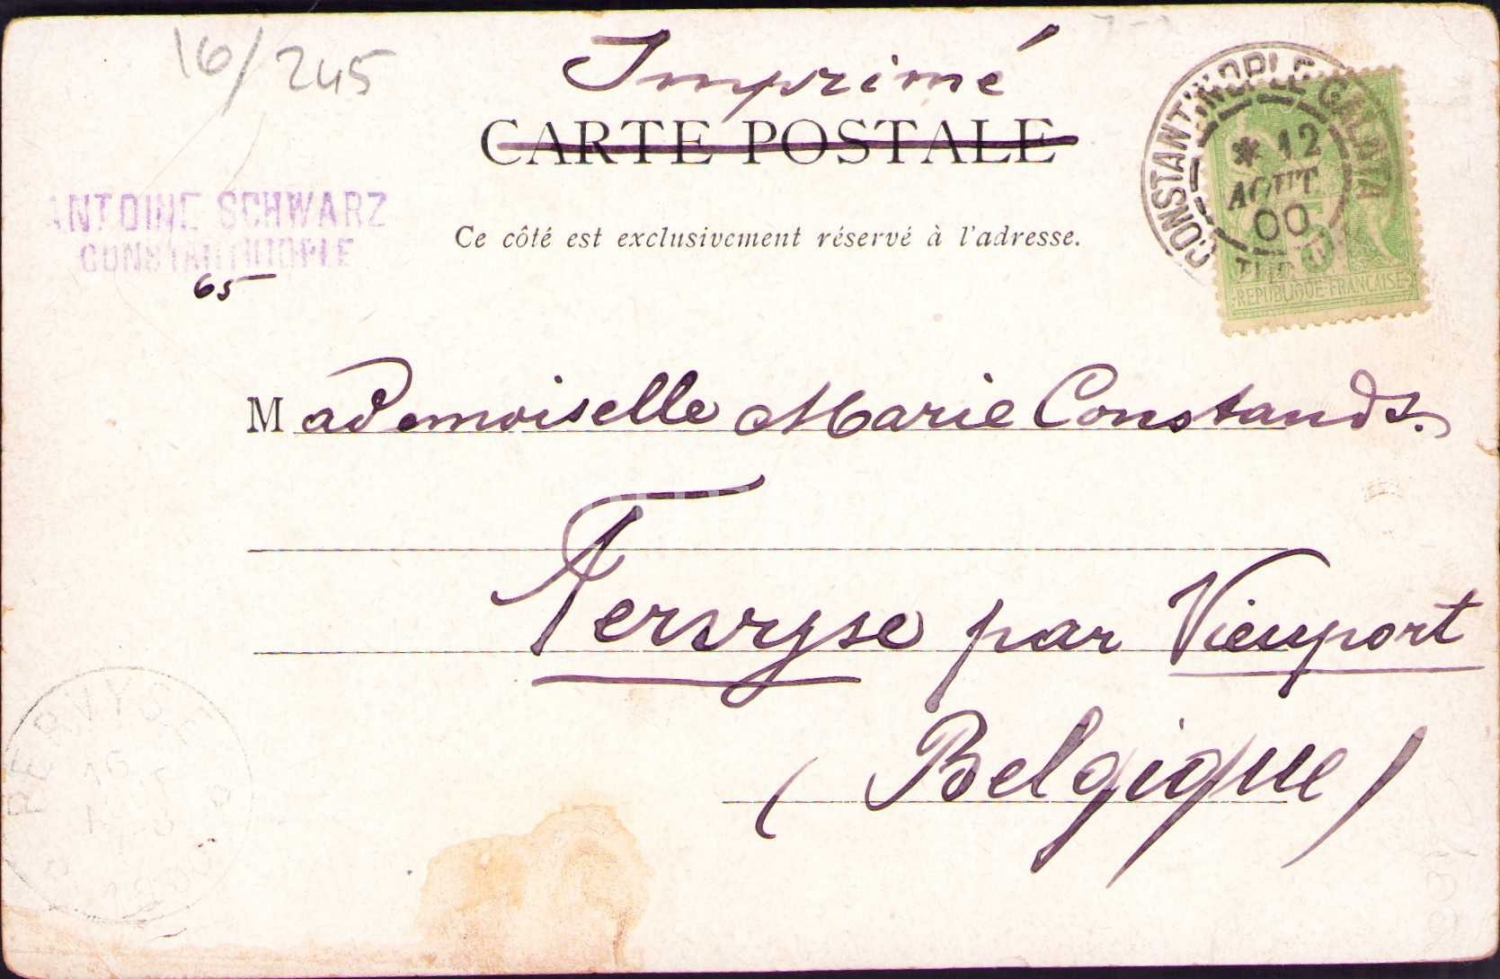 16/245
Imprimé
CARTE POSTALE
Ce côté est exclusivement réservé à l'adresse.
ANTOINE SCHWARZ
CONSTANTINOPLE
65
CONSTANTINOPLE-GALATA
* 12
AOUT
00
REPUBLIQUE FRANÇAISE
Mademoiselle Marie Constands.
Pervyse par Vieuport
(Belgique)
PERVYSE